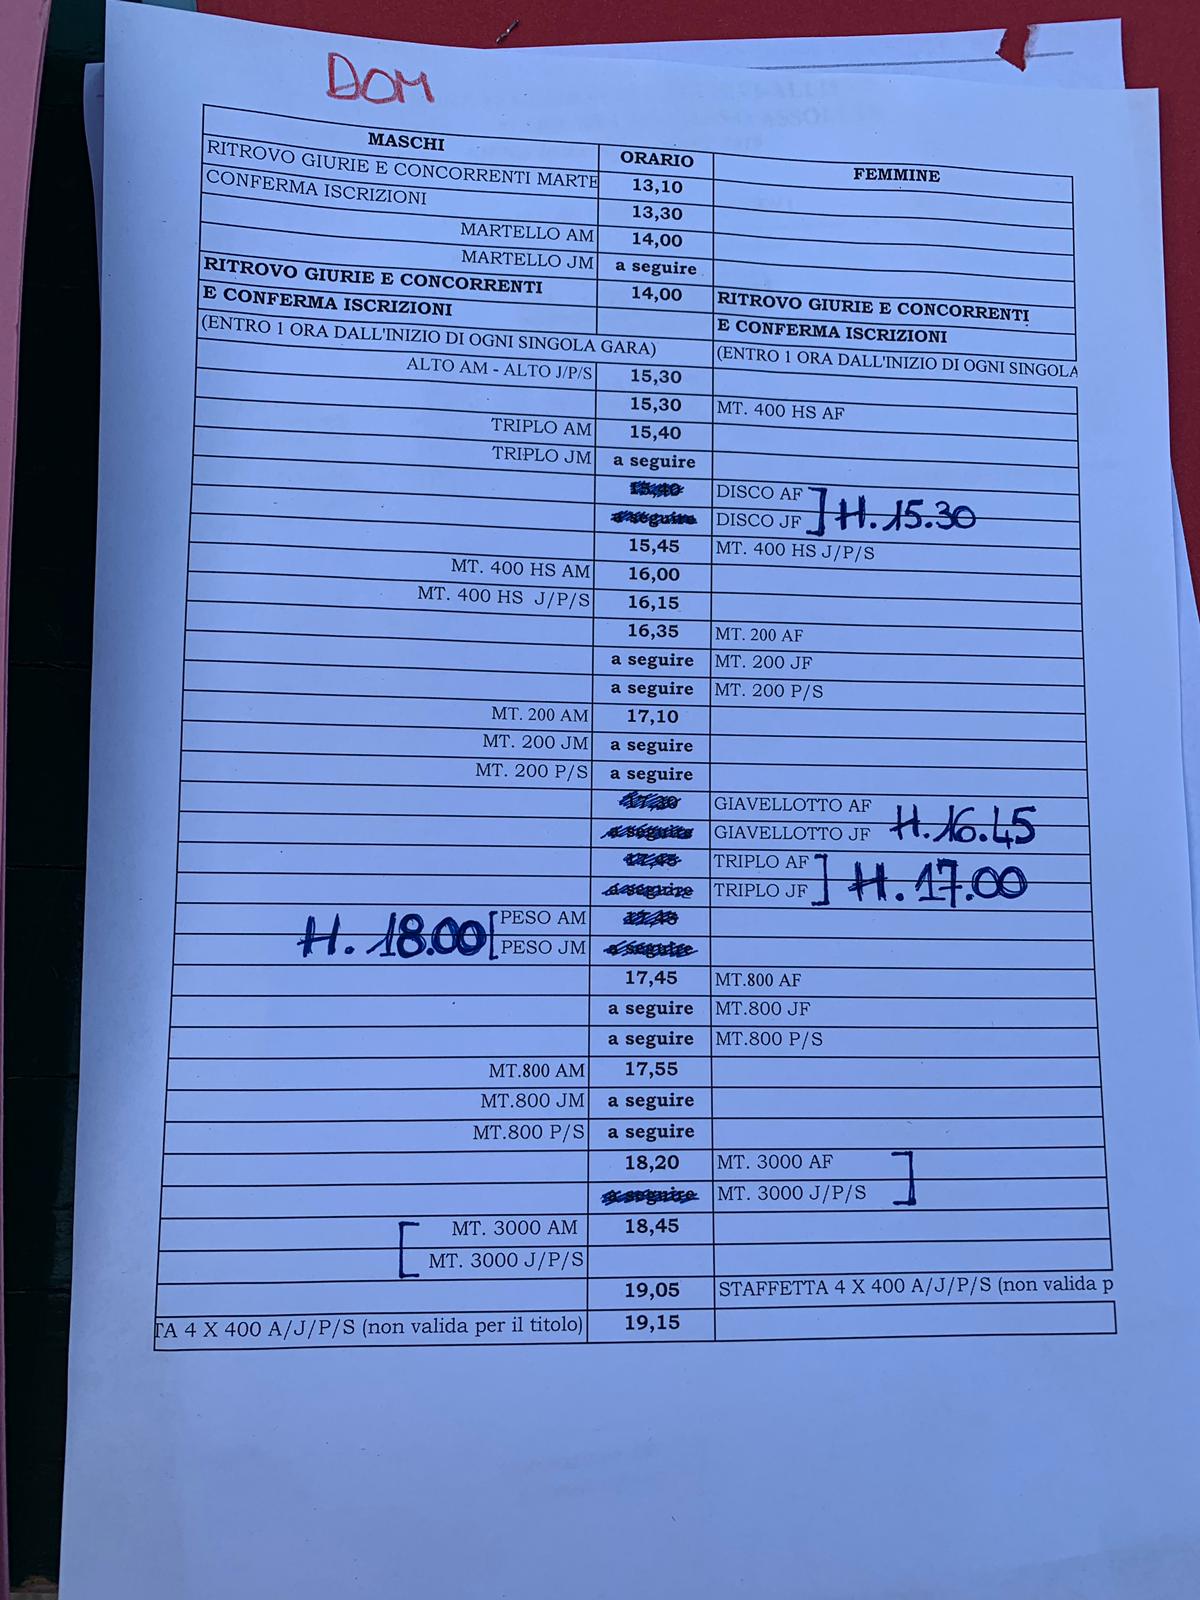 DOM
MASCHI ORARIO FEMMINE
RITROVO GIURIE E CONCORRENTI MARTE 13,10
CONFERMA ISCRIZIONI 13,30
MARTELLO AM 14,00
MARTELLO JM a seguire
RITROVO GIURIE E CONCORRENTI 14,00 RITROVO GIURIE E CONCORRENTI
E CONFERMA ISCRIZIONI E CONFERMA ISCRIZIONI
(ENTRO 1 ORA DALL'INIZIO DI OGNI SINGOLA GARA) (ENTRO 1 ORA DALL'INIZIO DI OGNI SINGOLA
ALTO AM - ALTO J/P/S 15,30
15,30 MT. 400 HS AF
TRIPLO AM 15,40
TRIPLO JM a seguire
15,40 DISCO AF
a seguire DISCO JF H. 15.30
15,45 MT. 400 HS J/P/S
MT. 400 HS AM 16,00
MT. 400 HS J/P/S 16,15
16,35 MT. 200 AF
a seguire MT. 200 JF
a seguire MT. 200 P/S
MT. 200 AM 17,10
MT. 200 JM a seguire
MT. 200 P/S a seguire
GIAVELLOTTO AF
a seguire GIAVELLOTTO JF H. 16.45
TRIPLO AF
a seguire TRIPLO JF H. 17.00
PESO AM
H. 18.00 PESO JM a seguire
17,45 MT.800 AF
a seguire MT.800 JF
a seguire MT.800 P/S
MT.800 AM 17,55
MT.800 JM a seguire
MT.800 P/S a seguire
18,20 MT. 3000 AF
a seguire MT. 3000 J/P/S
MT. 3000 AM 18,45
MT. 3000 J/P/S
19,05 STAFFETTA 4 X 400 A/J/P/S (non valida p
TA 4 X 400 A/J/P/S (non valida per il titolo) 19,15